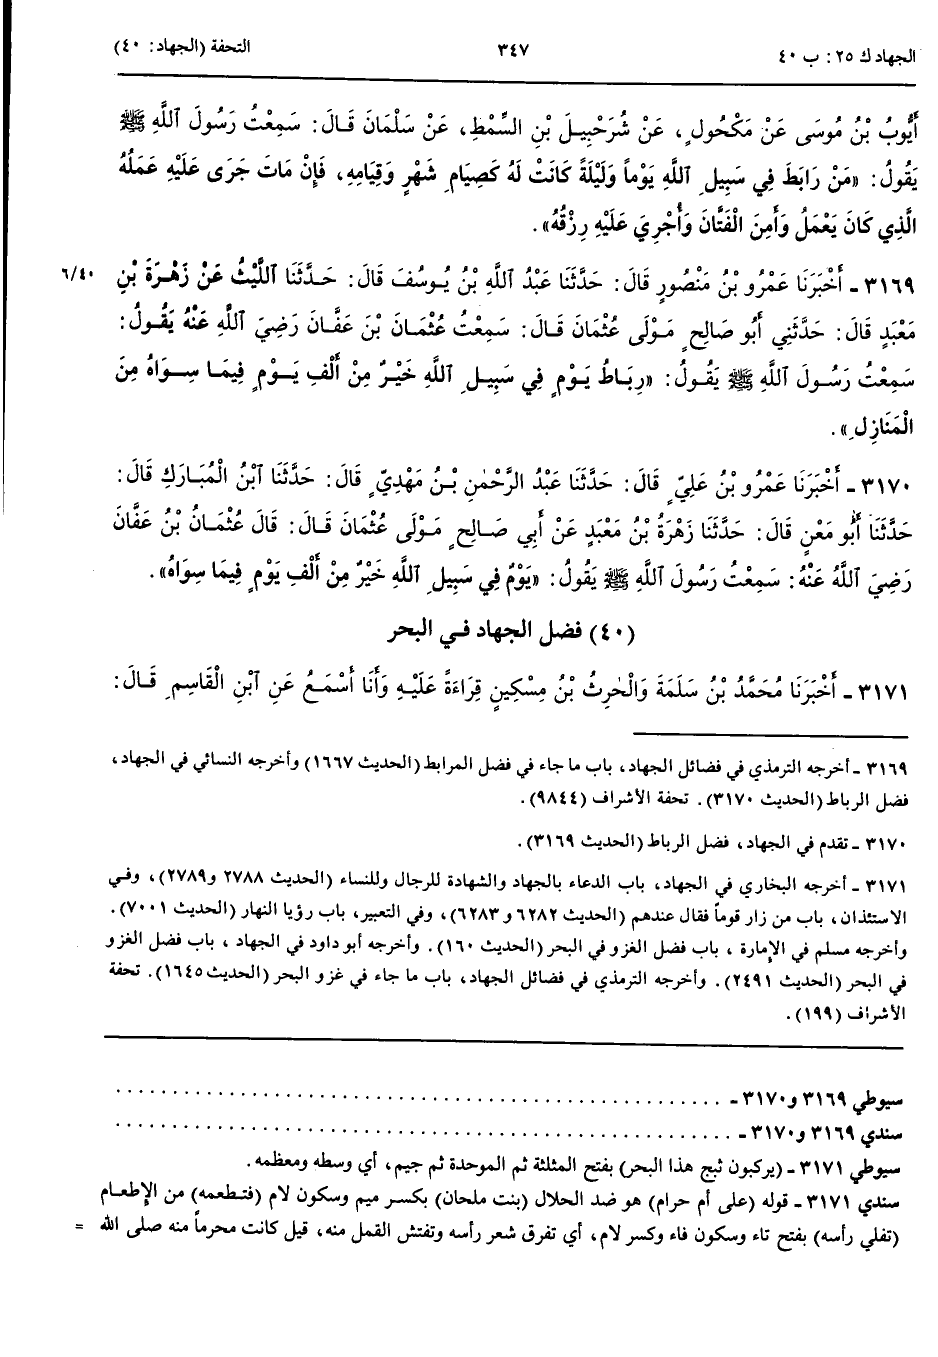 الجهاد ك ٢٥ : ب ٤٠
٣٤٧
التحفة (الجهاد: ٤٠)
أَيُّوبُ بْنُ مُوسَى عَنْ مَكْحُولٍ، عَنْ شُرَحْبِيلَ بْنِ السِّمْطِ، عَنْ سَلْمَانَ قَالَ: سَمِعْتُ رَسُولَ اللَّهِ ﷺ
يَقُولُ: «مَنْ رَابَطَ فِي سَبِيلِ اللَّهِ يَوْماً وَلَيْلَةً كَانَتْ لَهُ كَصِيَامِ شَهْرٍ وَقِيَامِهِ، فَإِنْ مَاتَ جَرَى عَلَيْهِ عَمَلُهُ
الَّذِي كَانَ يَعْمَلُ وَأَمِنَ الْفَتَّانَ وَأُجْرِيَ عَلَيْهِ رِزْقُهُ».
٣١٦٩ - أَخْبَرَنَا عَمْرُو بْنُ مَنْصُورٍ قَالَ: حَدَّثَنَا عَبْدُ اللَّهِ بْنُ يُوسُفَ قَالَ: حَدَّثَنَا اللَّيْثُ عَنْ زَهْرَةَ بْنِ
٦/٤٠
مَعْبَدٍ قَالَ: حَدَّثَنِي أَبُو صَالِحٍ مَوْلَى عُثْمَانَ قَالَ: سَمِعْتُ عُثْمَانَ بْنَ عَفَّانَ رَضِيَ اللَّهِ عَنْهُ يَقُولُ:
سَمِعْتُ رَسُولَ اللَّهِ ﷺ يَقُولُ: «رِبَاطُ يَوْمٍ فِي سَبِيلِ اللَّهِ خَيْرٌ مِنْ أَلْفِ يَوْمٍ فِيمَا سِوَاهُ مِنَ
الْمَنَازِلِ».
٣١٧٠ - أَخْبَرَنَا عَمْرُو بْنُ عَلِيٍّ قَالَ: حَدَّثَنَا عَبْدُ الرَّحْمٰنِ بْنُ مَهْدِيٍّ قَالَ: حَدَّثَنَا ابْنُ الْمُبَارَكِ قَالَ:
حَدَّثَنَا أَبُو مَعْنٍ قَالَ: حَدَّثَنَا زَهْرَةُ بْنُ مَعْبَدٍ عَنْ أَبِي صَالِحٍ مَوْلَى عُثْمَانَ قَالَ: قَالَ عُثْمَانُ بْنُ عَفَّانَ
رَضِيَ اللَّهُ عَنْهُ: سَمِعْتُ رَسُولَ اللَّهِ ﷺ يَقُولُ: «يَوْمٌ فِي سَبِيلِ اللَّهِ خَيْرٌ مِنْ أَلْفِ يَوْمٍ فِيمَا سِوَاهُ».
(٤٠) فضل الجهاد في البحر
٣١٧١ - أَخْبَرَنَا مُحَمَّدُ بْنُ سَلَمَةَ وَالْحٰرِثُ بْنُ مِسْكِينٍ قِرَاءَةً عَلَيْهِ وَأَنَا أَسْمَعُ عَنِ ابْنِ الْقَاسِمِ قَالَ:
٣١٦٩ - أخرجه الترمذي في فضائل الجهاد، باب ما جاء في فضل المرابط (الحديث ١٦٦٧) وأخرجه النسائي في الجهاد،
فضل الرباط (الحديث ٣١٧٠). تحفة الأشراف (٩٨٤٤).
٣١٧٠ - تقدم في الجهاد، فضل الرباط (الحديث ٣١٦٩).
٣١٧١ - أخرجه البخاري في الجهاد، باب الدعاء بالجهاد والشهادة للرجال وللنساء (الحديث ٢٧٨٨ و٢٧٨٩)، وفي
الاستئذان، باب من زار قوماً فقال عندهم (الحديث ٦٢٨٢ و ٦٢٨٣)، وفي التعبير، باب رؤيا النهار (الحديث ٧٠٠١).
وأخرجه مسلم في الإمارة ، باب فضل الغزو في البحر (الحديث ١٦٠). وأخرجه أبو داود في الجهاد ، باب فضل الغزو
في البحر (الحديث ٢٤٩١). وأخرجه الترمذي في فضائل الجهاد، باب ما جاء في غزو البحر (الحديث ١٦٤٥). تحفة
الأشراف (١٩٩).
سيوطي ٣١٦٩ و٣١٧٠ - ........................................................
سندي ٣١٦٩ و٣١٧٠ - ........................................................
سيوطي ٣١٧١ - (يركبون ثبج هذا البحر) بفتح المثلثة ثم الموحدة ثم جيم، أي وسطه ومعظمه.
سندي ٣١٧١ - قوله (على أم حرام) هو ضد الحلال (بنت ملحان) بكسر ميم وسكون لام (فتطعمه) من الإطعام
(تفلي رأسه) بفتح تاء وسكون فاء وكسر لام، أي تفرق شعر رأسه وتفتش القمل منه، قيل كانت محرماً منه صلى الله =